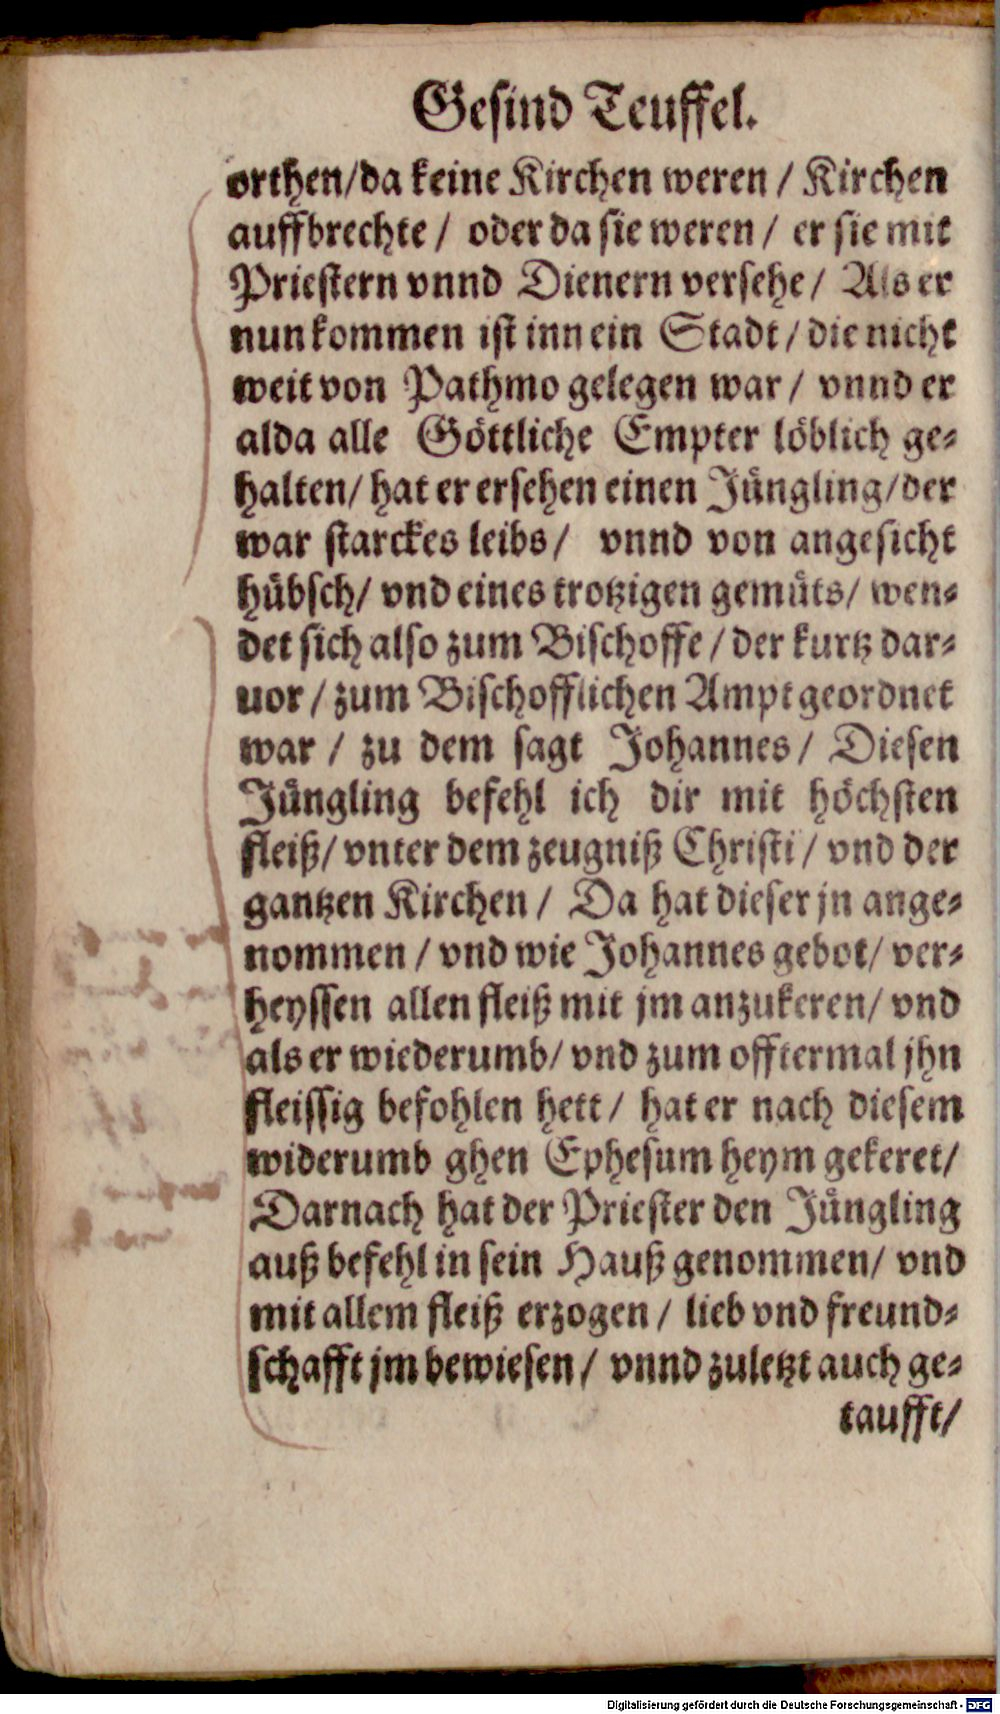 Gesind Teuffel.
orthen/da keine Kirchen weren / Kirchen
auffbrechte / oder da sie weren / er sie mit
Priestern vnnd Dienern versehe / Als er
nun kommen ist inn ein Stadt / die nicht
weit von Pathmo gelegen war / vnnd er
alda alle Göttliche Empter löblich ge-
halten/ hat er ersehen einen Jüngling/der
war starckes leibs / vnnd von angesicht
hübsch/ vnd eines trotzigen gemüts/ wen-
det sich also zum Bischoffe / der kurtz dar-
uor / zum Bischofflichen Ampt geordnet
war / zu dem sagt Johannes / Diesen
Jüngling befehl ich dir mit höchsten
fleiß/ vnter dem zeugniß Christi / vnd der
gantzen Kirchen / Da hat dieser jn ange-
nommen / vnd wie Johannes gebot/ ver-
heyssen allen fleiß mit jm anzukeren/ vnd
als er wiederumb/ vnd zum offtermal jhn
fleissig befohlen hett / hat er nach diesem
widerumb ghen Ephesum heym gekeret/
Darnach hat der Priester den Jüngling
auß befehl in sein Hauß genommen/ vnd
mit allem fleiß erzogen / lieb vnd freund-
schafft jm bewiesen / vnnd zuletzt auch ge-
taufft/
Digitalisierung gefördert durch die Deutsche Forschungsgemeinschaft - DFG